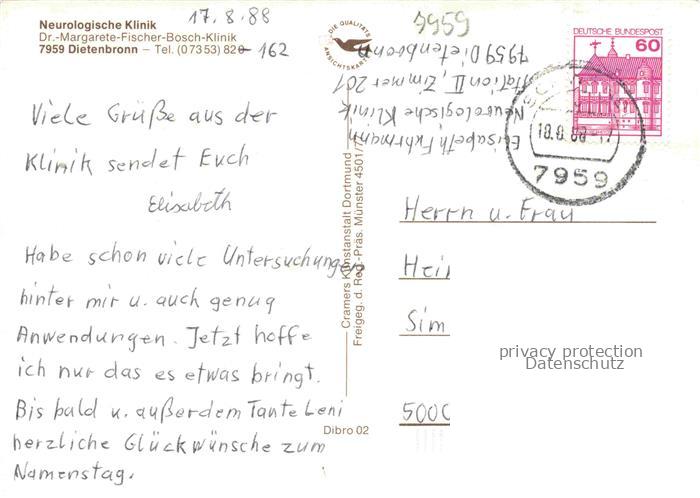 17.8.88
Neurologische Klinik
Dr.-Margarete-Fischer-Bosch-Klinik
7959 Dietenbronn – Tel. (07353) 820-162
Viele Grüße aus der
Klinik sendet Euch
Elisabeth
Habe schon viele Untersuchungen
hinter mir u. auch genug
Anwendungen. Jetzt hoffe
ich nur das es etwas bringt.
Bis bald u. außerdem Tante Leni
herzliche Glückwünsche zum
Namenstag.
DIE QUALITÄTS
ANSICHTSKARTE
Cramers Kunstanstalt Dortmund
Freigeg. d. Reg.-Präs. Münster 4501/7
Dibro 02
7959
Elisabeth Fuhrmann
Neurologische Klinik
Station II, Zimmer 201
7959 Dietenbronn
DEUTSCHE BUNDESPOST
60
18.8.88-17
7959
Herrn u. Frau
Hei
Sim
5000
privacy protection
Datenschutz